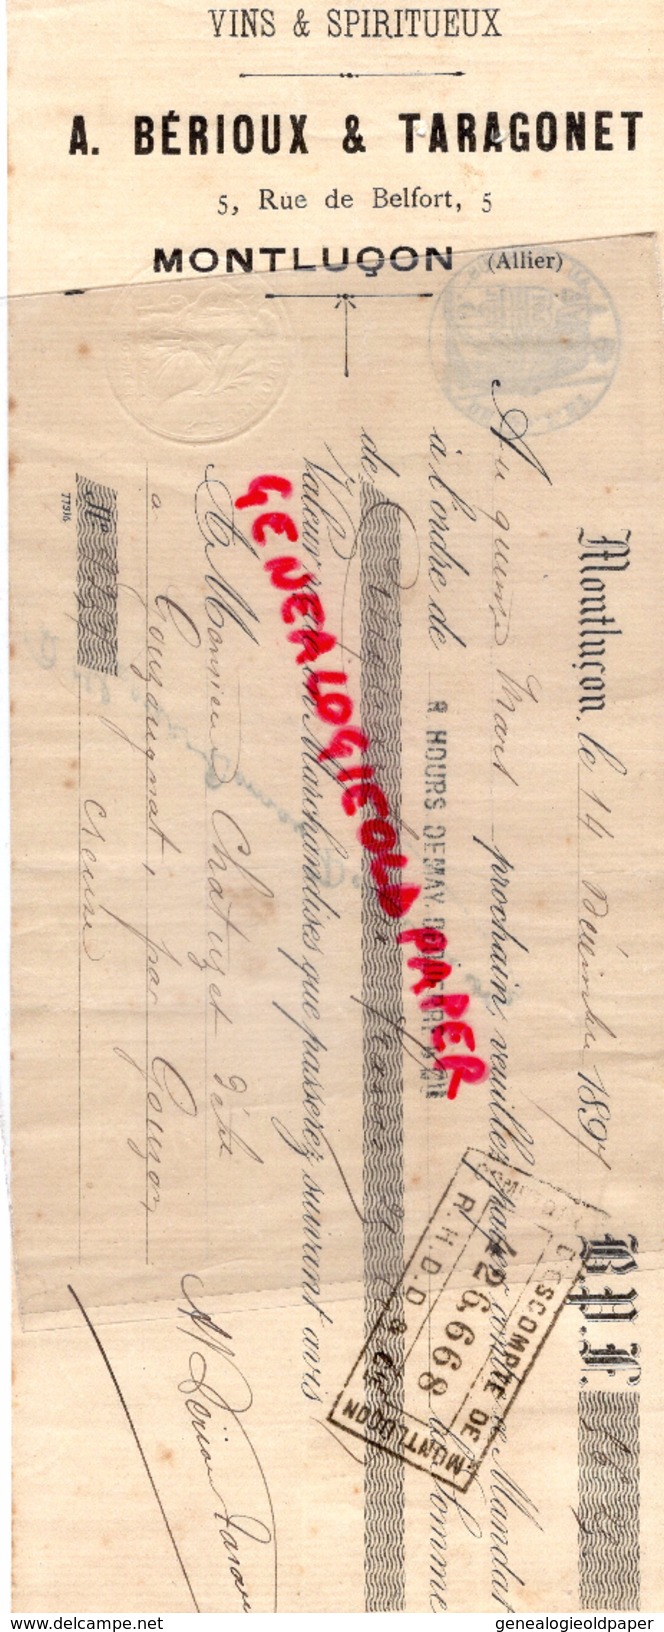 VINS & SPIRITUEUX
A. BÉRIOUX & TARAGONET
5, Rue de Belfort, 5
MONTLUÇON (Allier)
Montluçon, le 14 Décembre 1897 B.P.F.
Au quinze Mars prochain, veuillez payer contre ce Mandat
à l'ordre de R HOURS DEMAY, la Somme
de francs
Valeur reçue en Marchandises que passerez suivant avis
A Monsieur Chatuzet
à Gouzougnat, par Gouzon
Creuse
No
77916
COMPTOIR D'ESCOMPTE DE MONTLUÇON
26,668
R. H. D. D & Cie
GENEALOGIEOLDPAPER
delcampe.net
genealogieoldpaper